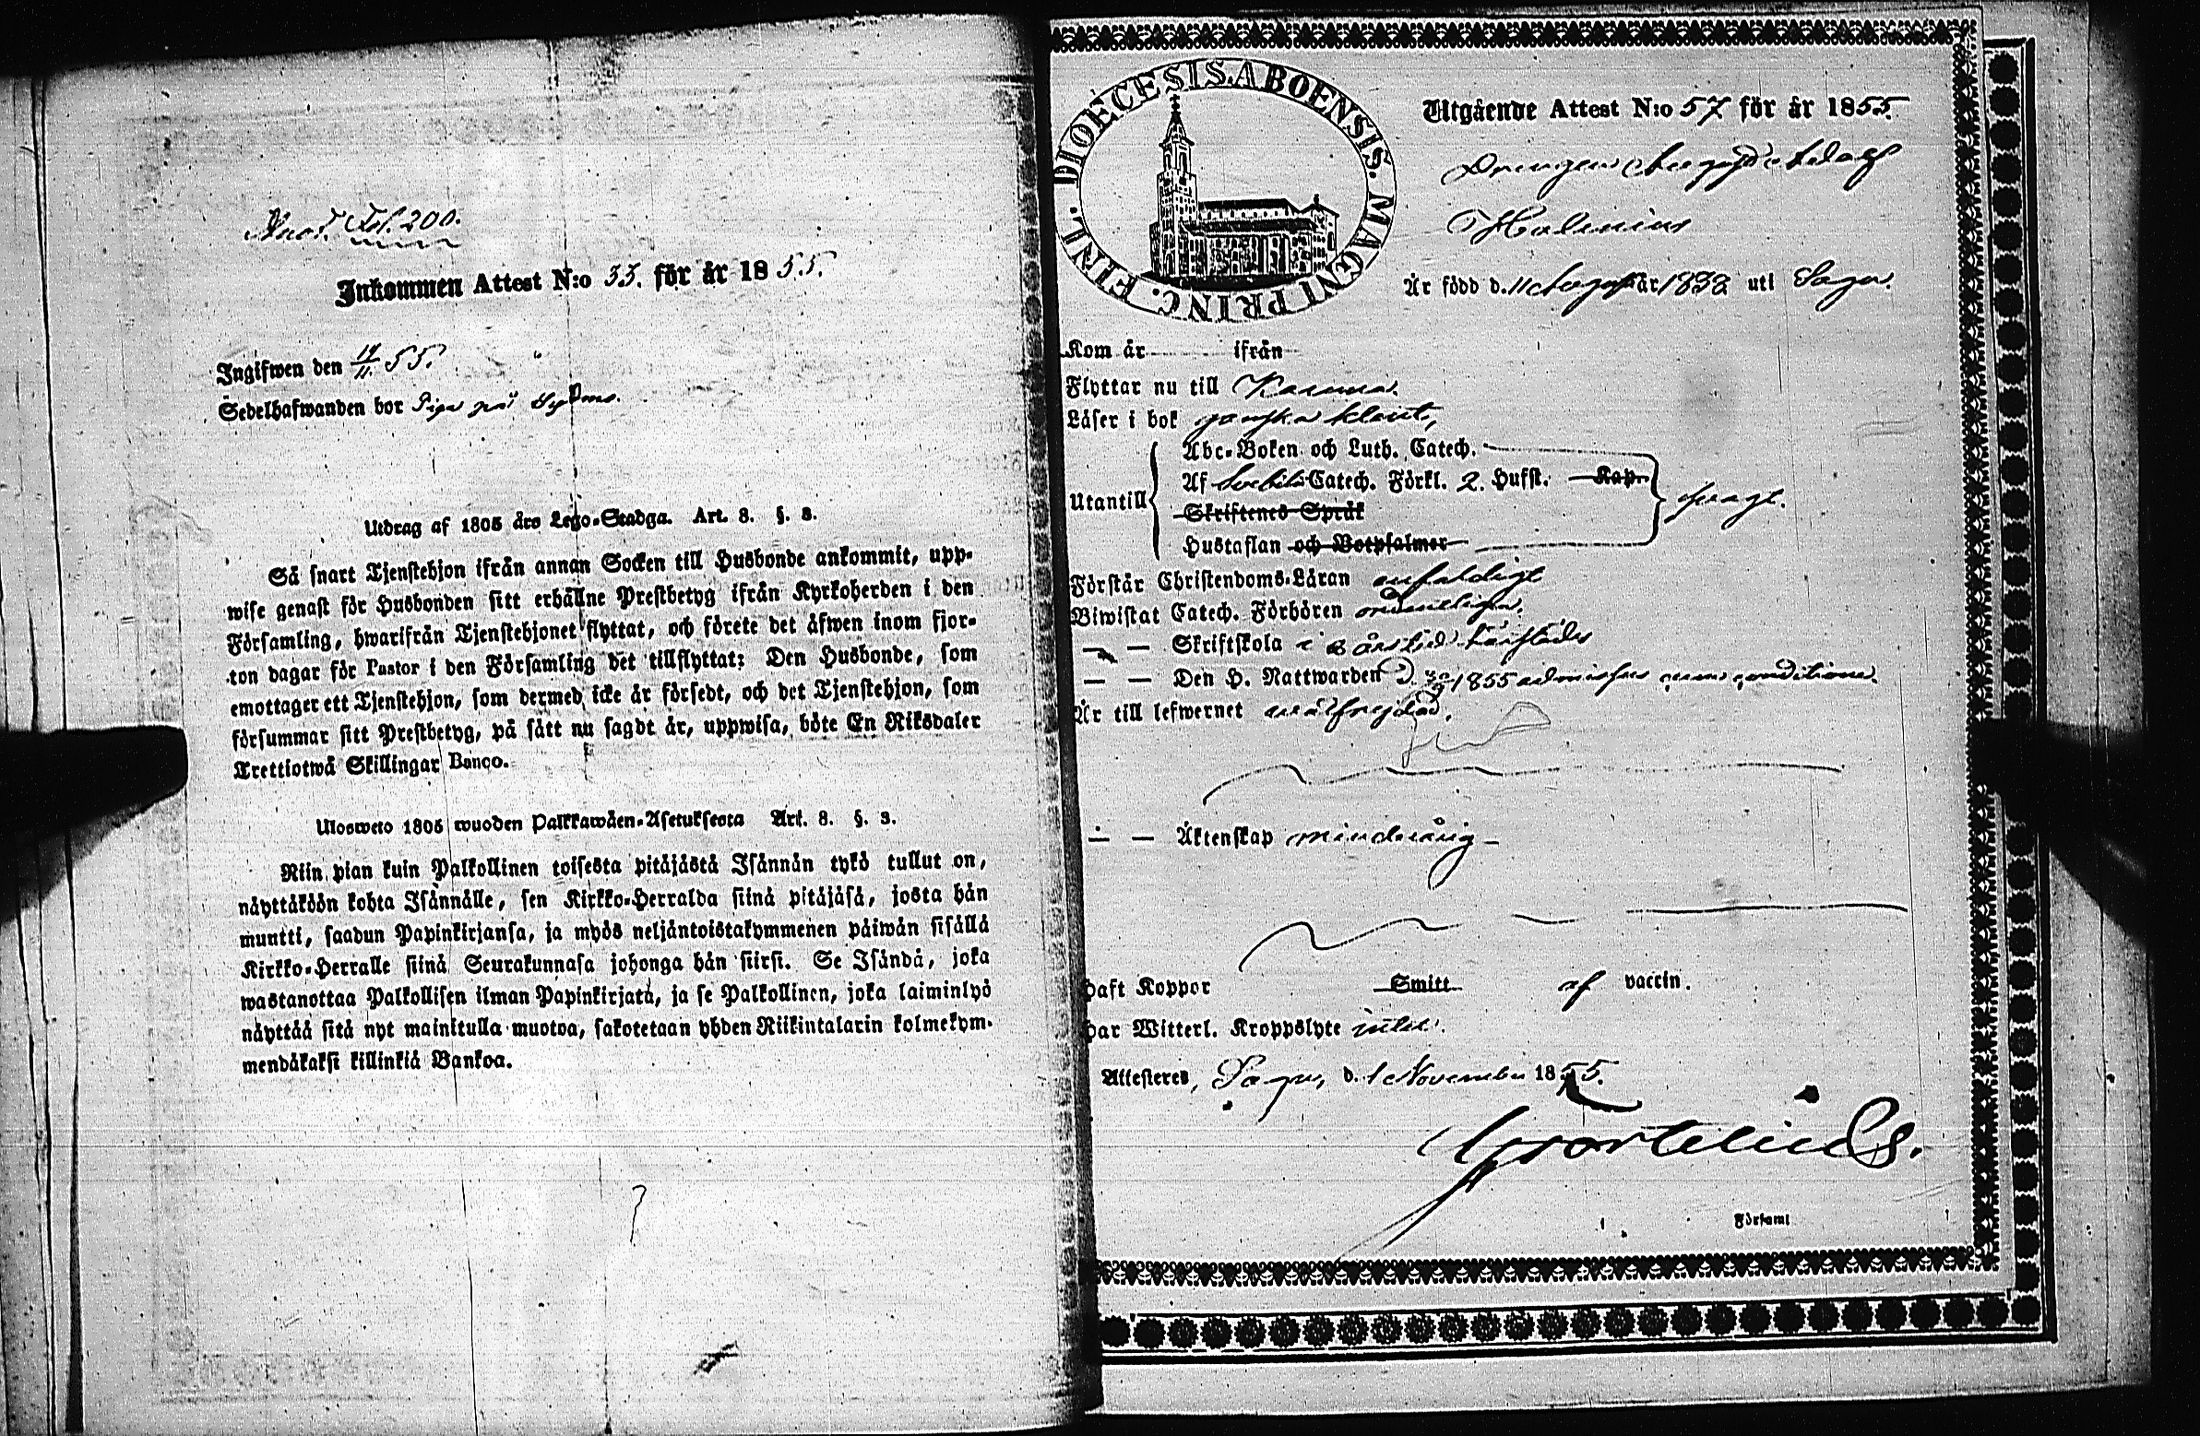 Fol. 200.
Inkommen Attest N:o 33. för år 1855.
Ingifwen den 14/11 55.
Sedelhafwanden bor Piga på
Utdrag af 1805 års Lego-Stadga. Art. 8. §. 3.
Så snart Tjenstehjon ifrån annan Socken till Husbonde ankommit, upp-
wise genast för Husbonden sitt erhållne Prestbetyg ifrån Kyrkoherden i den
Församling, hwarifrån Tjenstehjonet flyttat, och förete det åfwen inom fjor-
ton dagar för Pastor i den Församling det tillflyttat; Den Husbonde, som
emottager ett Tjenstehjon, som dermed icke år försedt, och det Tjenstehjon, som
försummar sitt Prestbetyg, på sått nu sagdt år, uppwisa, böte En Riksdaler
Trettiotwå Skillingar Banco.
Ulosweto 1805 wuoden Palkkawåen-Asetuksesta Art. 8. §. 3.
Niin pian kuin Palkollinen toisesta pitåjåstå Isånnån tykö tullut on,
nåyttåköön kohta Isånnålle, sen Kirkko-Herralda siinå pitåjåså, josta hån
muutti, saadun Papinkirjansa, ja myös neljåntoistakymmenen påiwån sisållå
Kirkko-Herralle siinå Seurakunnasa johonga hån siirsi. Se Isåndå, joka
wastanottaa Palkollisen ilman Papinkirjatå, ja se Palkollinen, joka laiminlyö
nåyttåå sitå nyt mainitulla muotoa, sakotetaan yhden Riikintalarin kolmekym-
mendåkaksi killinkiå Bankoa.
DIOECESIS. ABOENSIS. MAGNI PRINC. FINL.
Utgående Attest N:o 57 för år 1855.
Drengen August Adolf
Är född d. 11 August år 1838 uti Sagu.
Kom år ifrån
Flyttar nu till Karuna.
Låser i bok ganska klent,
Abc-Boken och Luth. Catech.
Utantill
Af Svebilii Catech. Förkl. 2. Hufst. Kap.
Skriftenes Språk
svagt.
Hustaflan och Botpsalmer
Förstår Christendoms-Låran enfaldigt
Biwistat Catech. Förhören ordentligen.
— — Skriftskola i 3 års tid härstädes
— — Den H. Nattwarden d. 1855 admissus cum conditione.
Är till lefwernet wälfrejdad.
— — Äktenskap minderårig —
Haft Koppor Smitt af vaccin.
Har Witterl. Kroppslyte intet.
Attesteres, Sagu, d. 1 November 1855.
Församl